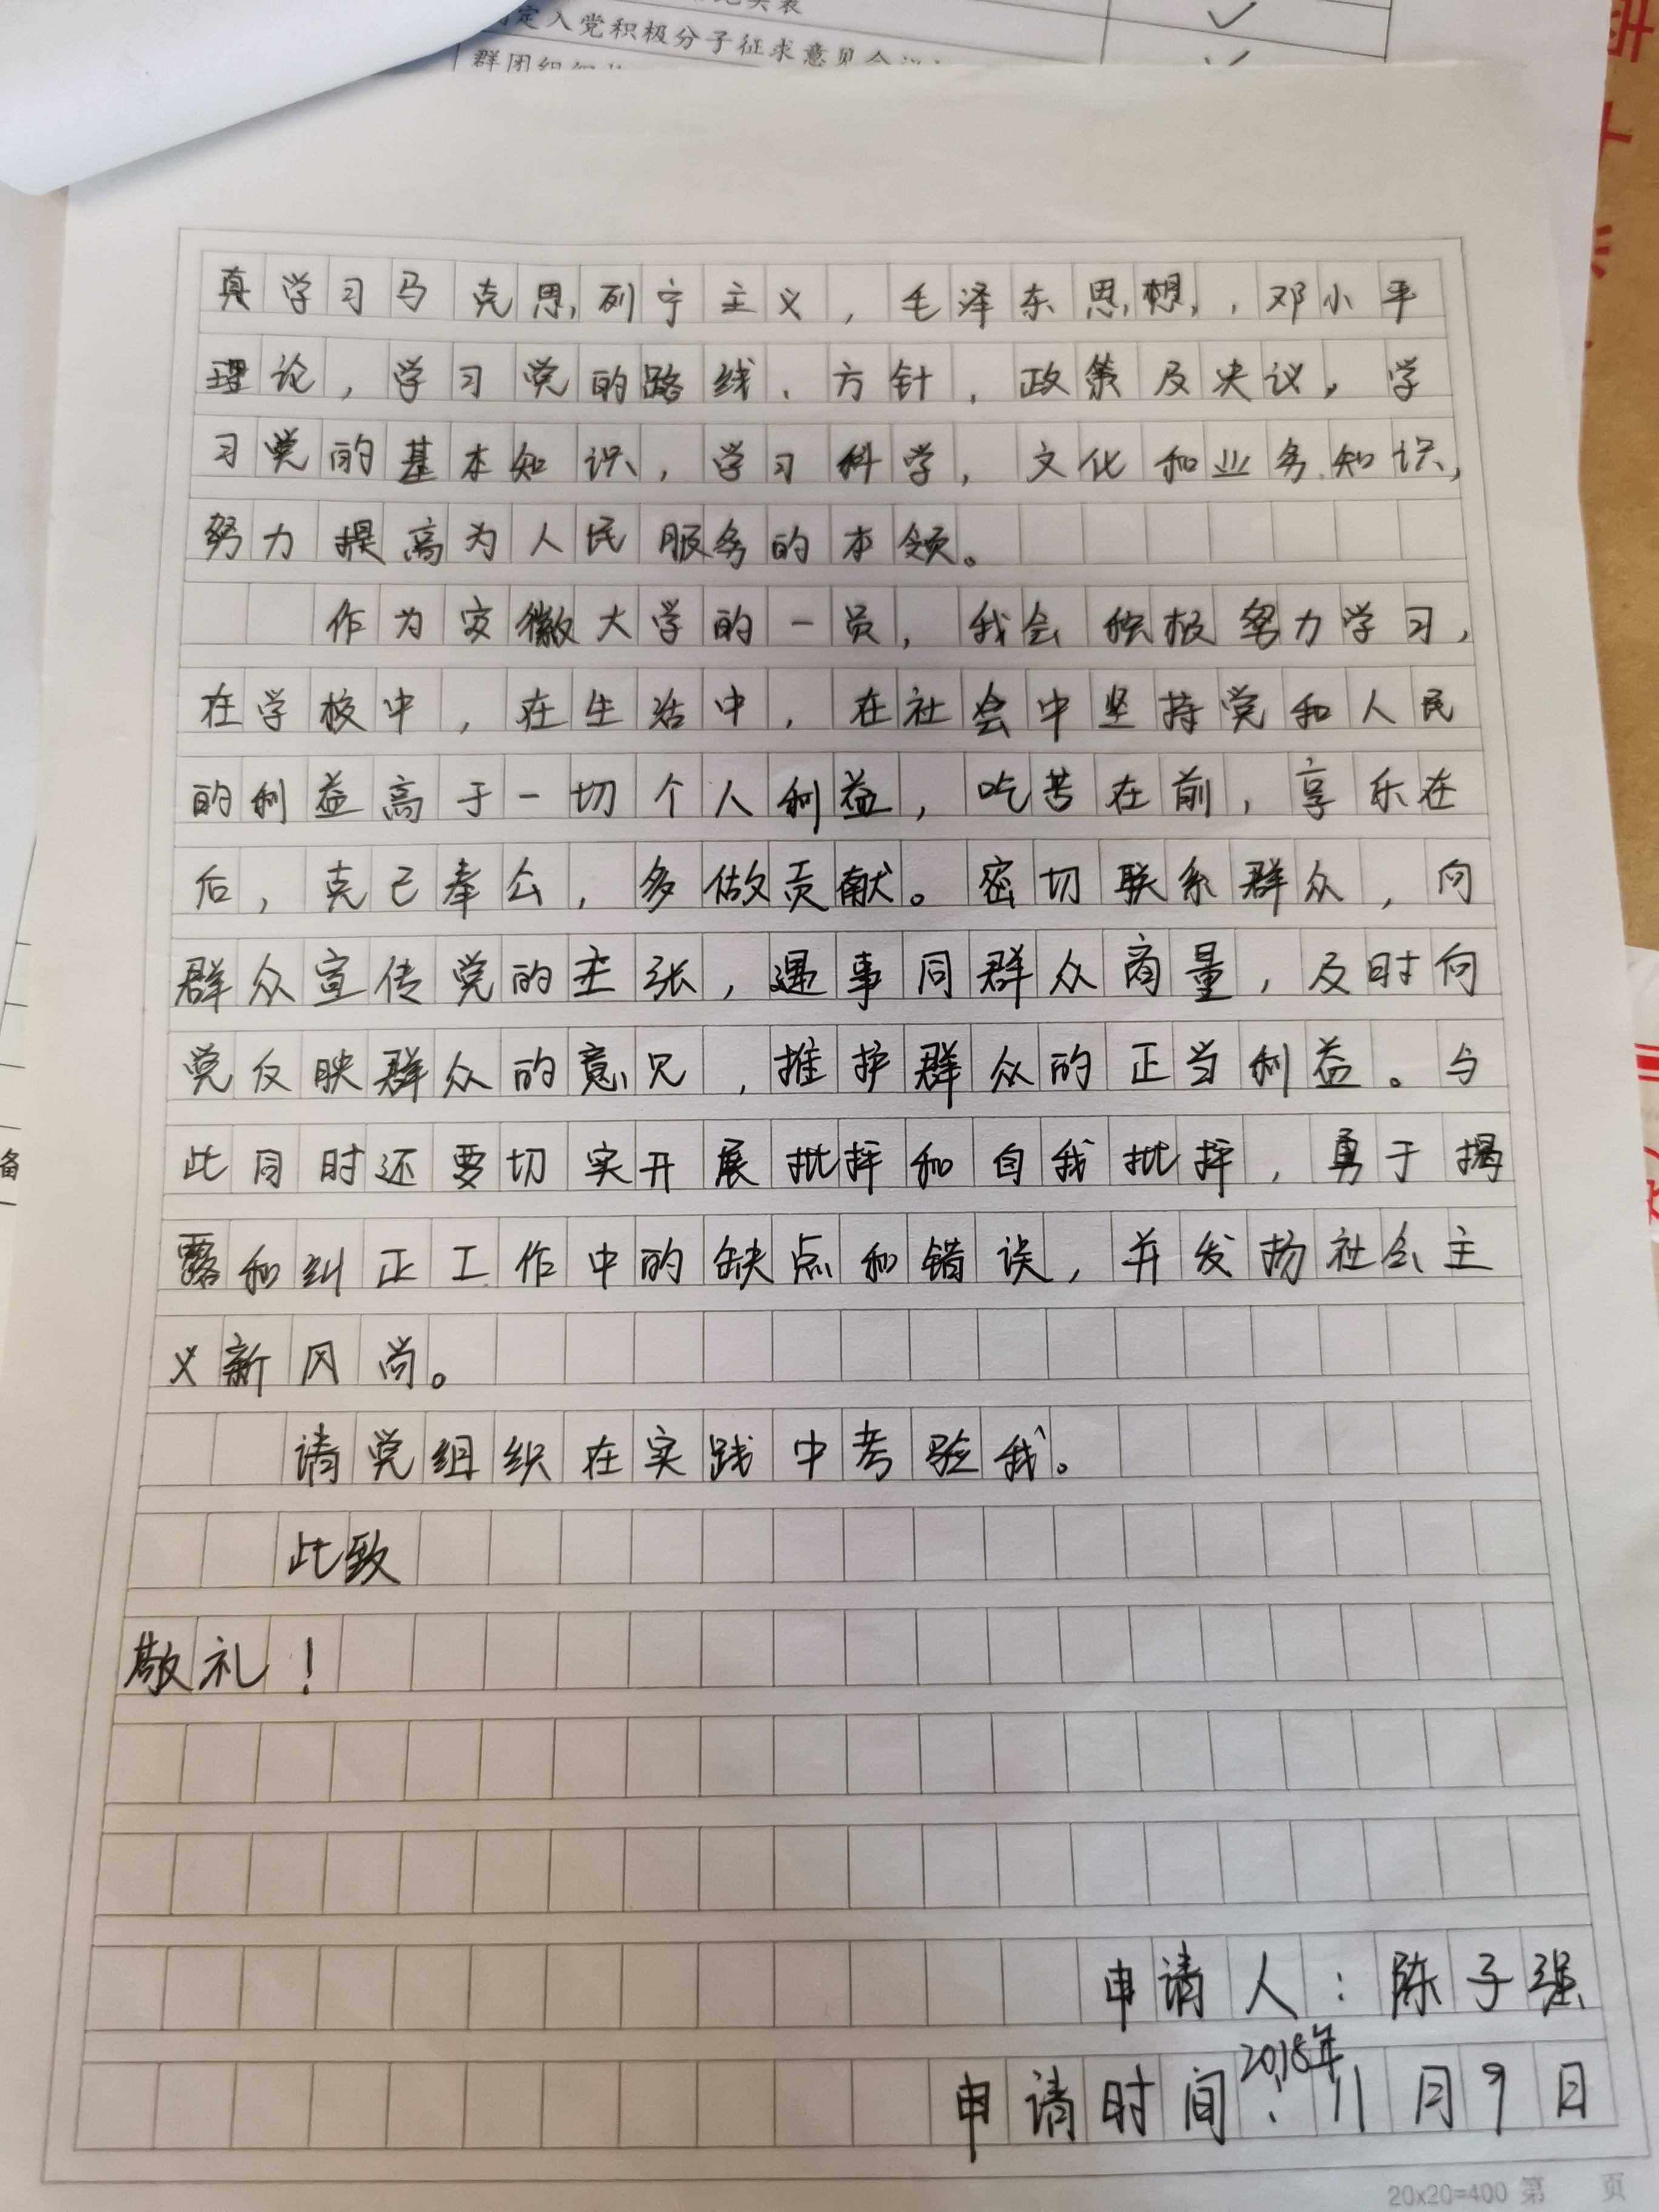 定入党积极分子征求意见会议
真学习马克思列宁主义,毛泽东思想,,邓小平
理论,学习党的路线、方针,政策及决议,学
习党的基本知识,学习科学,文化和业务知识,
努力提高为人民服务的本领。
作为安徽大学的一员,我会积极努力学习,
在学校中,在生活中,在社会中坚持党和人民
的利益高于一切个人利益,吃苦在前,享乐在
后,克己奉公,多做贡献。密切联系群众,向
群众宣传党的主张,遇事同群众商量,及时向
党反映群众的意见,推护群众的正当利益。与
此同时还要切实开展批评和自我批评,勇于揭
露和纠正工作中的缺点和错误,并发扬社会主
义新风尚。
请党组织在实践中考验我。
此致
敬礼!
申请人:陈子强
2018年
申请时间:11月9日
20x20=400 第 页
备